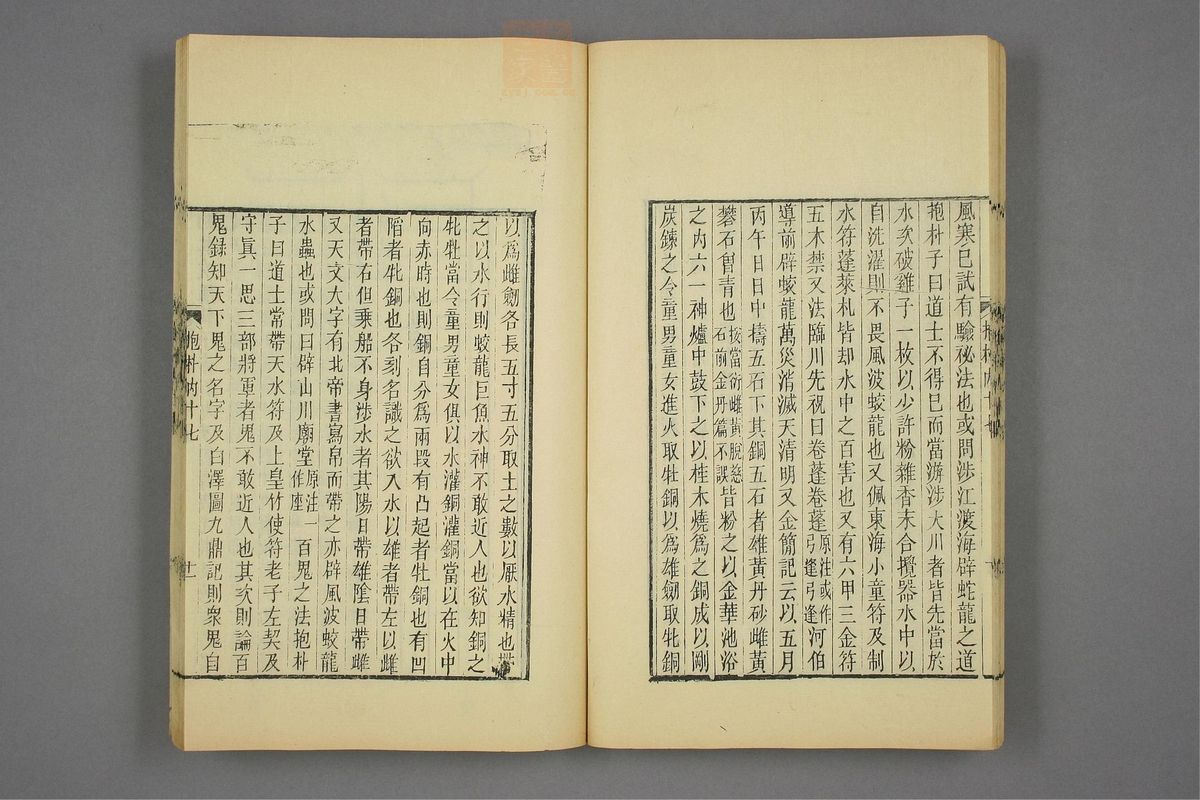 風寒已試有驗祕法也或問涉江渡海辟蛇龍之道
抱朴子曰道士不得已而當游涉大川者皆先當於
水次破雞子一枚以少許粉雜香末合攪器水中以
自洗濯則不畏風波蛟龍也又佩東海小童符及制
水符蓬萊札皆却水中之百害也又有六甲三金符
五木禁又法臨川先祝曰卷蓬卷蓬原注或作弓逢弓逢河伯
導前辟蛟龍萬災消滅天清明又金簡記云以五月
丙午日日中擣五石下其銅五石者雄黃丹砂雌黃
礬石曾青也按當衍雌黃脫慈石前金丹篇不誤皆粉之以金華池浴
之內六一神爐中鼓下之以桂木燒爲之銅成以剛
炭鍊之令童男童女進火取牡銅以爲雄劒取牝銅
以爲雌劒各長五寸五分取土之數以厭水精也帶
之以水行則蛟龍巨魚水神不敢近人也欲知銅之
牝牡當令童男童女俱以水灌銅灌銅當以在火中
向赤時也則銅自分爲兩段有凸起者牡銅也有凹
陷者牝銅也各刻名識之欲入水以雄者帶左以雌
者帶右但乘船不身涉水者其陽日帶雄陰日帶雌
又天文大字有北帝書寫帛而帶之亦辟風波蛟龍
水蟲也或問曰辟山川廟堂原注一作座百鬼之法抱朴
子曰道士常帶天水符及上皇竹使符老子左契及
守真一思三部將軍者鬼不敢近人也其次則論百
鬼錄知天下鬼之名字及白澤圖九鼎記則衆鬼自
抱朴內十七
十一